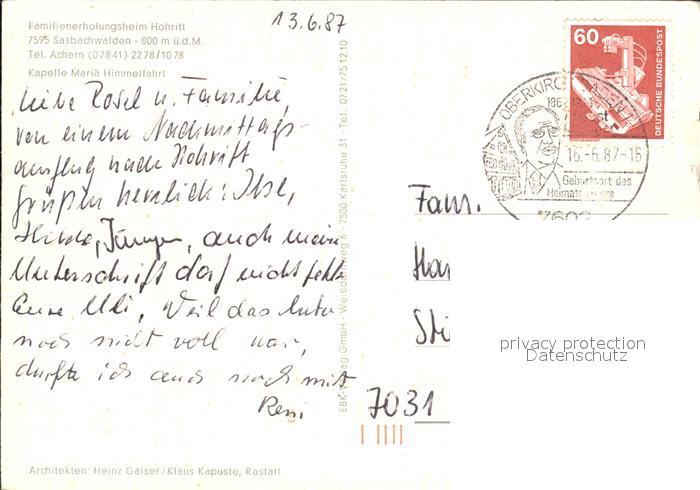 13.6.87
Familienerholungsheim Hohritt
7595 Sasbachwalden - 800 m ü.d.M.
Tel. Achern (07841) 2278/1078
Kapelle Mariä Himmelfahrt
Liebe Rosel u. Familie,
von einem Nachmittags-
ausflug nach Hohritt
grüßen herzlich: Ilse,
auch meine
Unterschrift darf nicht fehlen
Eure Uli, Weil das Auto
noch nicht voll war,
durfte ich auch noch mit
Resi
Architekten: Heinz Gaiser/Klaus Kapuste, Rastatt
7500 Karlsruhe 31 · Tel. 0721/751210
60
DEUTSCHE BUNDESPOST
OBERKIRCH
16.-6.87-16
Geburtsort des
7602
Fam.
7031
privacy protection
Datenschutz